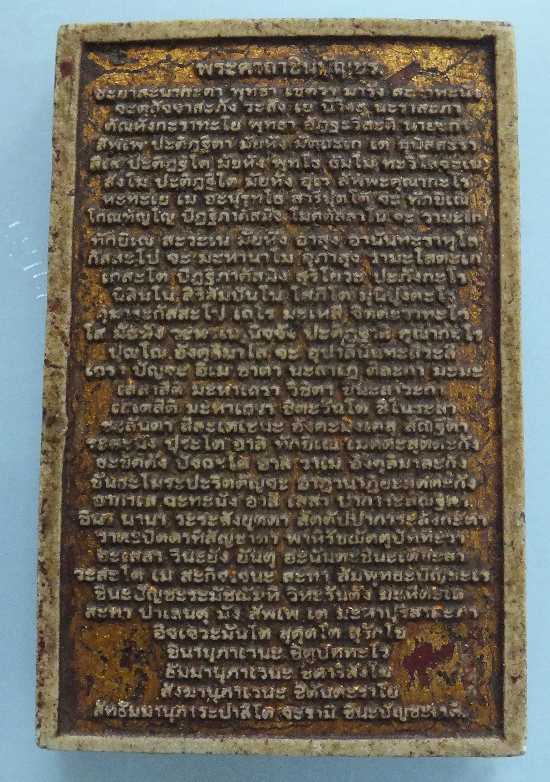 พระคาถาชินบัญชร
ชะยาสะนากะตา พุทธา เชตวา มารัง สะวาหะนัง
จะตุสัจจาสะภัง ระสัง เย ปิวิงสุ นะราสะภา
ตัณหังกะราทะโย พุทธา อัฏฐะวีสะติ นายะกา
สัพเพ ปะติฏฐิตา มัยหัง มัตถะเก เต มุนิสสะรา
สีเส ปะติฏฐิโต มัยหัง พุทโธ ธัมโม ทะวิโลจะเน
สังโฆ ปะติฏฐิโต มัยหัง อุเร สัพพะคุณากะโร
หะทะเย เม อะนุรุทโธ สารีปุตโต จะ ทักขิเณ
โกณฑัญโญ ปิฏฐิภาคัสมิง โมคคัลลาโน จะ วามะเก
ทักขิเณ สะวะเน มัยหัง อาสุง อานันทะราหุโล
กัสสะโป จะ มะหานาโม อุภาสุง วามะโสตะเก
เกสะโต ปิฏฐิภาคัสมิง สุริโยวะ ปะภังกะโร
นิสินโน สิริสัมปันโน โสภิโต มุนิปุงคะโว
กุมาระกัสสะโป เถโร มะเหสี จิตตะวาทะโก
โส มัยหัง วะทะเน นิจจัง ปะติฏฐาสิ คุณากะโร
ปุณโณ อังคุลิมาโล จะ อุปาลีนันทะสีวะลี
เถรา ปัญจะ อิเม ชาตา นะลาเฏ ติละกา มะมะ
เสสาสีติ มะหาเถรา วิชิตา ชินะสาวะกา
เอเตสีติ มะหาเถรา ชิตะวันโต ชิโนระสา
ชะลันตา สีละเตเชนะ อังคะมังเคสุ สัณฐิตา
ระตะนัง ปุระโต อาสิ ทักขิเณ เมตตะสุตตะกัง
ธะชัคคัง ปัจฉะโต อาสิ วาเม อังคุลิมาละกัง
ขันธะโมระปะริตตัญจะ อาฏานาฏิยะสุตตะกัง
อากาเส ฉะทะนัง อาสิ เสสา ปาการะสัณฐิตา
ชินา นานา วะระสังยุตตา สัตตัปปาการะลังกะตา
วาตะปิตตาทิสัญชาตา พาหิรัชฌัตตุปัททะวา
อะเสสา วินะยัง ยันตุ อะนันตะชินะเตชะสา
วะสะโต เม สะกิจเจนะ สะทา สัมพุทธะปัญชะเร
ชินะปัญชะระมัชฌัมหิ วิหะรันตัง มะหีตะเล
สะทา ปาเลนตุ มัง สัพเพ เต มะหาปุริสาสะภา
อิจเจวะมันโต สุคุตโต สุรักโข
ชินานุภาเวนะ ชิตุปัททะโว
ธัมมานุภาเวนะ ชิตาริสังโฆ
สังฆานุภาเวนะ ชิตันตะราโย
สัทธัมมานุภาวะปาลิโต จะรามิ ชินะปัญชะเรติ